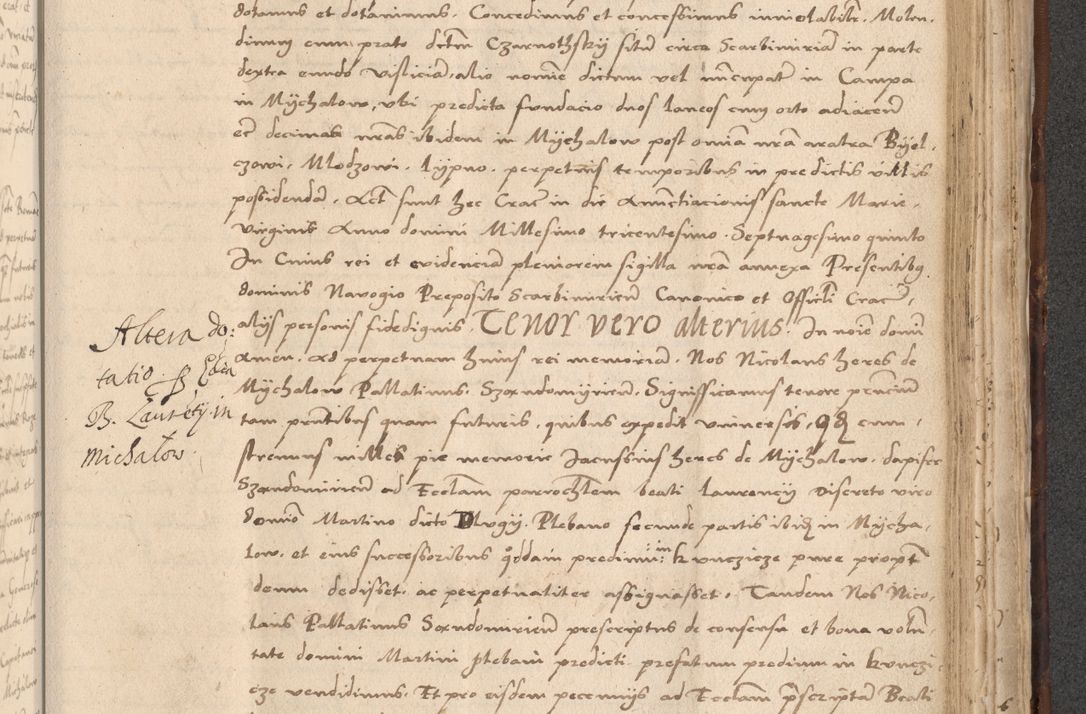 dotamus et dotavimus. Concedimus et concessimus inviolabilr. Molen.
dinum cum prato dctm Czarnothskÿ situm circa Scarbimiriam in parte
dextra eundo Visliciam, alio nomine dictum vel nuncupatum in Campa
in Mÿchalow, vbi predicta fundacio duos laneos cum orto adiacen
et decimas nras ibidem in Mÿchalow post omnia nra aratra Bÿel,
czowi, Mlodzowi, Lÿpno, perpetuis temporibus in predictis villis
possidendas. Act sunt hec Crac in die Anunctiacionis sancte Marie,
Virginis Anno domini Millesimo tricentesimo Septuagesimo quinto
In Cuius rei et evidenciam pleniorem sigilla nra annexa Presentibq
dominis Navogio Preposito Scarbimirien Canonico et Officli Crac,
alÿs personis fidedignis. Tenor vero alterius. In noie domi
Amen. Ad perpetuam huius rei memoriam. Nos Nicolaus heres de
Mÿchalow Pallatinus Szandomÿrien, Significamus tenore pncium
tam pntibus quam futuris, quibus expedit vniversis, qd cum,
strenuus milles pie memorie Jacussius heres de Mÿchalow, dapifer
Szandomirien ad Ecclam parrochlem beati Laurencÿ Discreto viro
domino Martino dicto Dlugÿ. Plebano secunde partis ibid in Mÿcha,
low, et eius successoribus qddam predium in Kunczicze pure propt
deum dedisset, ac perpetualiter assignasset. Tandem Nos Nico,
laus Pallatinus Sandomirien prescriptus de consensu et bona volun,
tate domini Martini plebani predicti prefatum predium in Kunczi,
cze vendidimus. Et pro eisdem pecuniÿs ad Ecclam pscriptam Beati
Altera do:
tatio
B. Laurētÿ in
Michalow.